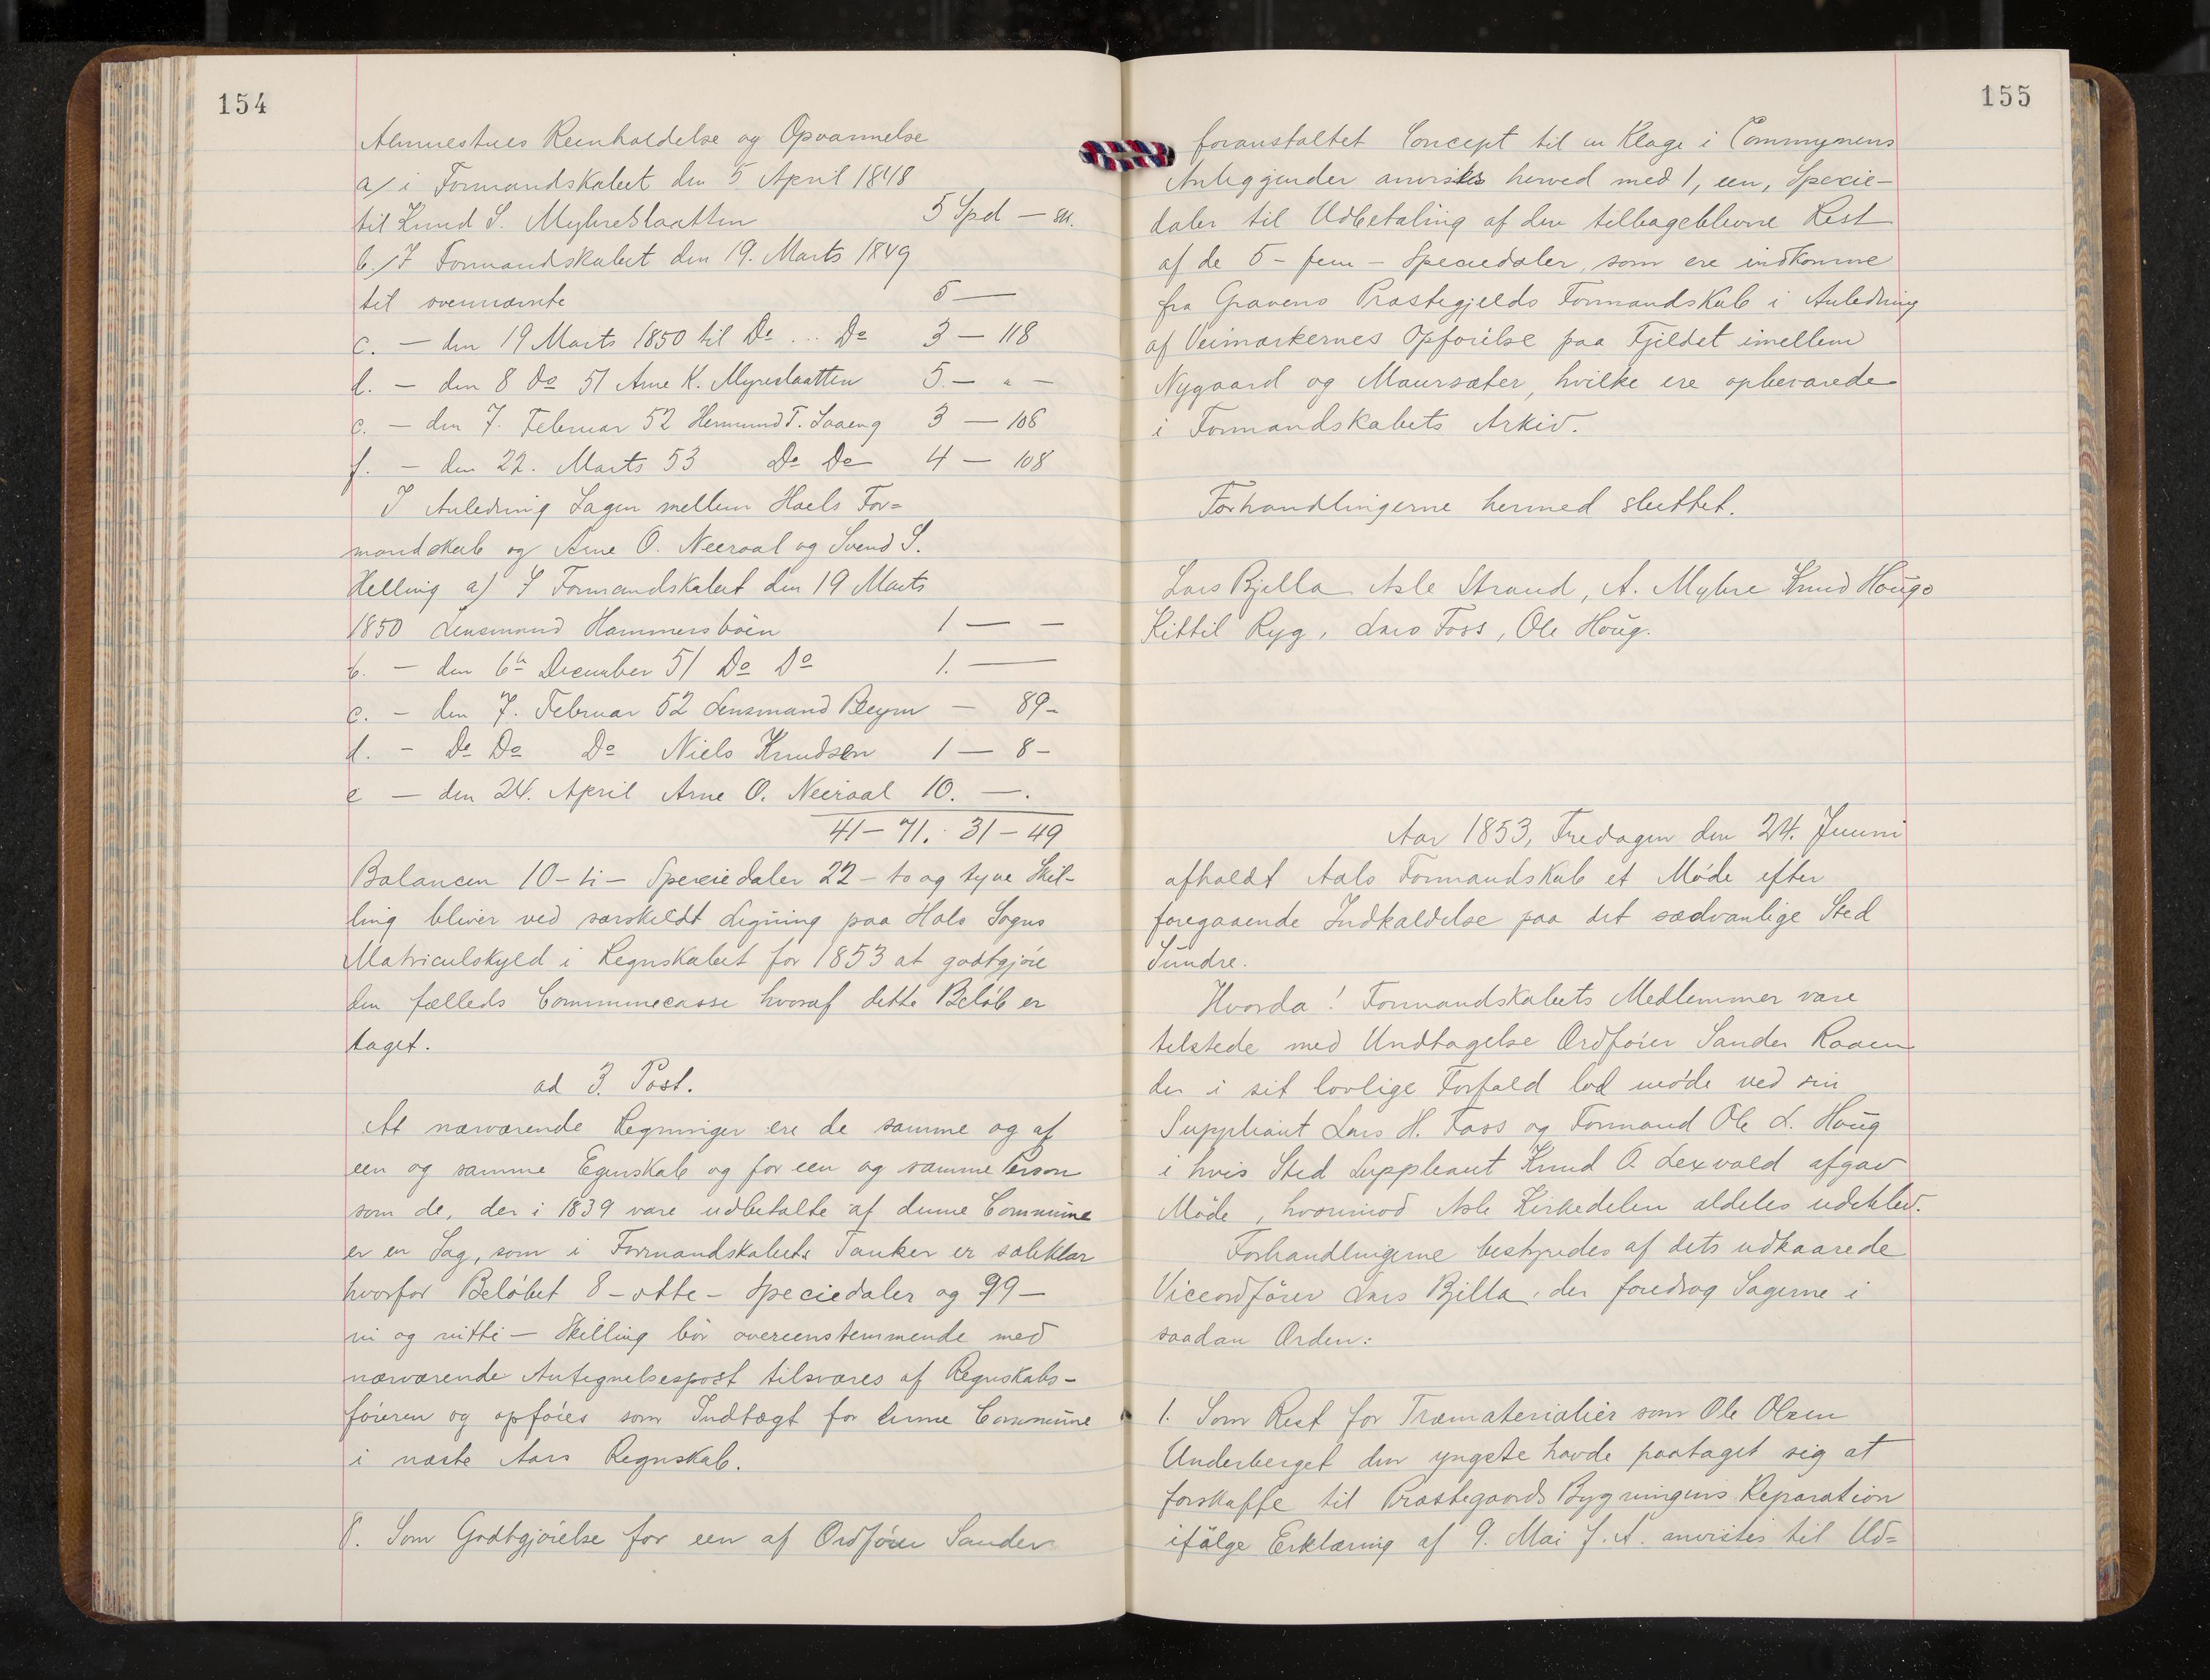 154
Almuestues Reenholdelse og Opvarmelse
a/ i Formandskabet den 5 April 1848
til Knud S. Myhreslaatten 5 Spd – sk.
b./ I Formandskabet den 19. Marts 1849
til ovennævnte 5 —
c. – den 19 Marts 1850 til Do ... Do 3 – 118
d. – den 8 do 51 Arne K. Myreslaatten 5. – " –
e. – den 7. Februar 52 Hermund T. Laaeng 3 – 106
f. – den 22. Marts 53 Do Do 4 – 108
I Anledning Sagen mellem Hoels For=
mandskab og Arne O. Neeraal og Svend S.
Helling a) I Formandskabet den 19 Marts
1850 Lensmand Hammersbøen 1 – –
b. – den 6te December 51 Do Do 1. —
c. – den 7. Februar 52 Lensmand Beyrn – 89–
d. – Do Do Do Niels Knudsen 1 – 8–
e – den 24. April Arne O. Neeraal 10. –.
41 – 71. : 31 – 49
Balancen 10 – ti – Speciedaler 22 – to og tyve Skil-
ling bliver ved særskildt Ligning paa Hols Sogns
Matriculskyld i Regnskabet for 1853 at godtgjøre
den fælleds Communecasse hvoraf dette Beløb er
taget.
ad 3. Post.
At nærværende Regninger ere de samme og af
een og samme Egenskab og for een og samme Person
som de, der i 1839 vare udbetalte af denne Commune
er en Sag, som i Formandskabets Tanker er soleklar
hvorfor Beløbet 8 – otte – Speciedaler og 99 –
ni og nitti – Skilling bør overeenstemmende med
nærværende Antegnelsespost tilsvares af Regnskabs-
føreren og opføres som Indtægt for denne Commune
i næste Aars Regnskab.
8. Som Godtgjørelse for een af Ordfører Sander
155
foranstaltet Concept til en Klage i Communens
Anliggender anvistes herved med 1, een, Specie-
daler til Udbetaling af den tilbageblevne Rest
af de 5 – fem – Speciedaler, som ere indkomne
fra Gravens Præstegjelds Formandskab i Anledning
af Veimærkernes Opførelse paa Fjeldet imellem
Nygaard og Maursæter, hvilke ere opbevarede
i Formandskabets Arkiv.
Forhandlingerne hermed sluttet.
Lars Bjella Asle Strand, A. Myhre Knud Hougo
Kittil Ryg, Lars Foss, Ole Houg.
Aar 1853, Fredagen den 24. Juuni
afholdt Aals Formandskab et Møde efter
foregaaende Indkaldelse paa det sædvanlige Sted
Sundre.
Hvorda! Formandskabets Medlemmer vare
tilstede med Undtagelse Ordfører Sander Raaen
der i sit lovlige Forfald lod møde ved sin
Suppleant Lars H. Foss og Formand Ole L. Houg
i hvis Sted Suppleant Knud O. Lexvold afgav
Møde, hvorimod Asle Kirkedelen aldeles udeblev.
Forhandlingerne bestyredes af dets udkaarede
Viceordfører Lars Bjella, der foredrog Sagerne i
saadan Orden:
1. Som Rest for Træmaterialier som Ole Olsen
Underberget den yngste havde paataget sig at
forskaffe til Præstegaards Bygningens Reparation
ifølge Erklæring af 9. Mai f. A. anvistes til Ud=